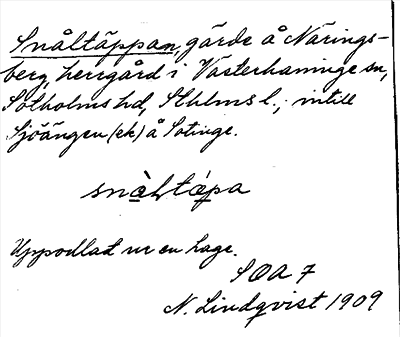 Snåltäppan, gärde å Närings-
berg, herrgård i Västerhaninge sn,
Sotholms hd, Sthlms l., intill
Sjöängen (ek) å Sotinge.
snåltäpa
Uppodlad ur en hage.
SOA 7
N. Lindqvist 1909